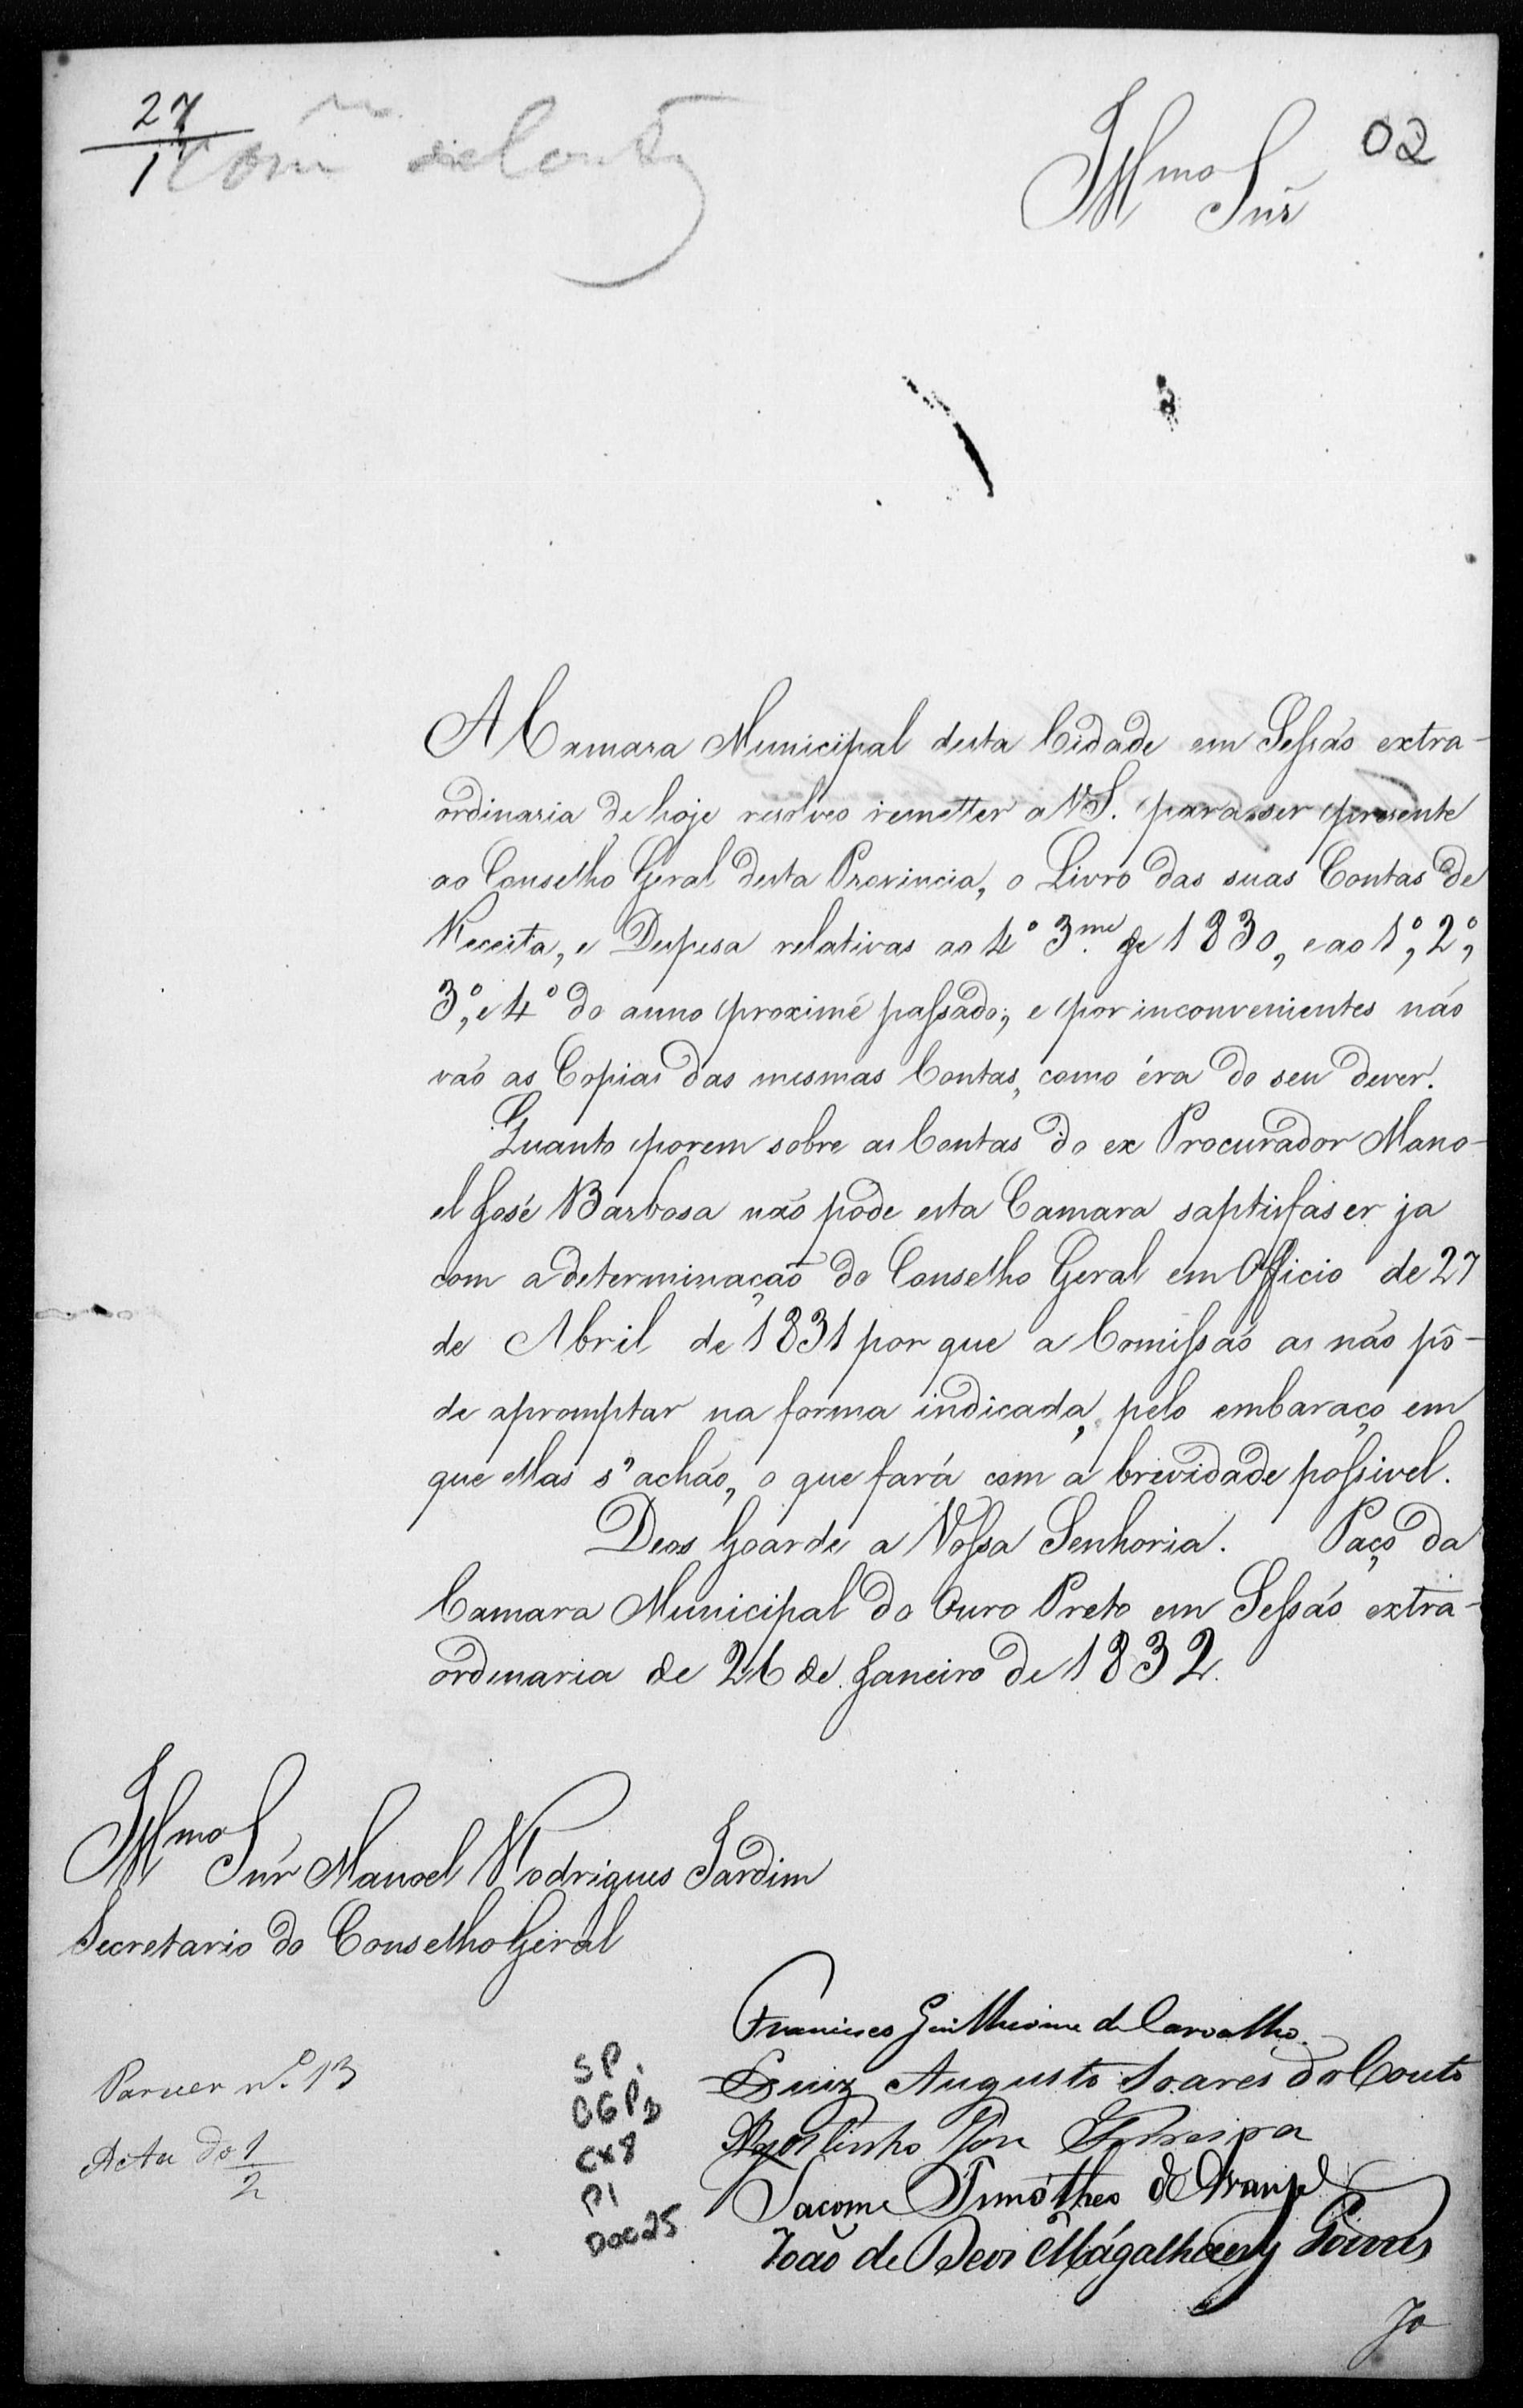 27
1
Com de Contas
02
Illmo Snr
A Camara Municipal desta Cidade em Sessão extra-
ordinaria de hoje resolveo remetter a VS. para ser presente
ao Conselho Geral desta Provincia, o Livro das suas Contas de
Receita, e Despesa relativas ao 4º 3.me de 1830, e ao 1º, 2º,
3º, e 4º do anno proximé passado; e por inconvenientes não
vão as Copias das mesmas Contas, como éra do seu dever.
Quanto porem sobre as Contas do ex Procurador Mano-
el José Barbosa não póde esta Camara saptisfaser ja
com a determinação do Conselho Geral em Officio de 27
de Abril de 1831 por que a Comissão as não pô-
de apromptar na forma indicada, pelo embaraço em
que ellas s'achão, o que fará com a brividade possivel.
Deos Goarde a Vossa Senhoria. Paço da
Camara Municipal do Ouro Preto em Sessão extra-
ordinaria de 26 de Janeiro de 1832.
Illmo Snr Manoel Rodrigues Jardim
Secretario do Conselho Geral
Francisco Guilherme de Carvalho.
Luiz Augusto Soares do Couto
Agostinho José Ferreira
Jacome Timótheo de Araujo
João de Deos Magalhaens Gomes
Parecer nº. 13
Acta do 1
2
SP.
CGP2
CX8
P1
DOC25
Jo